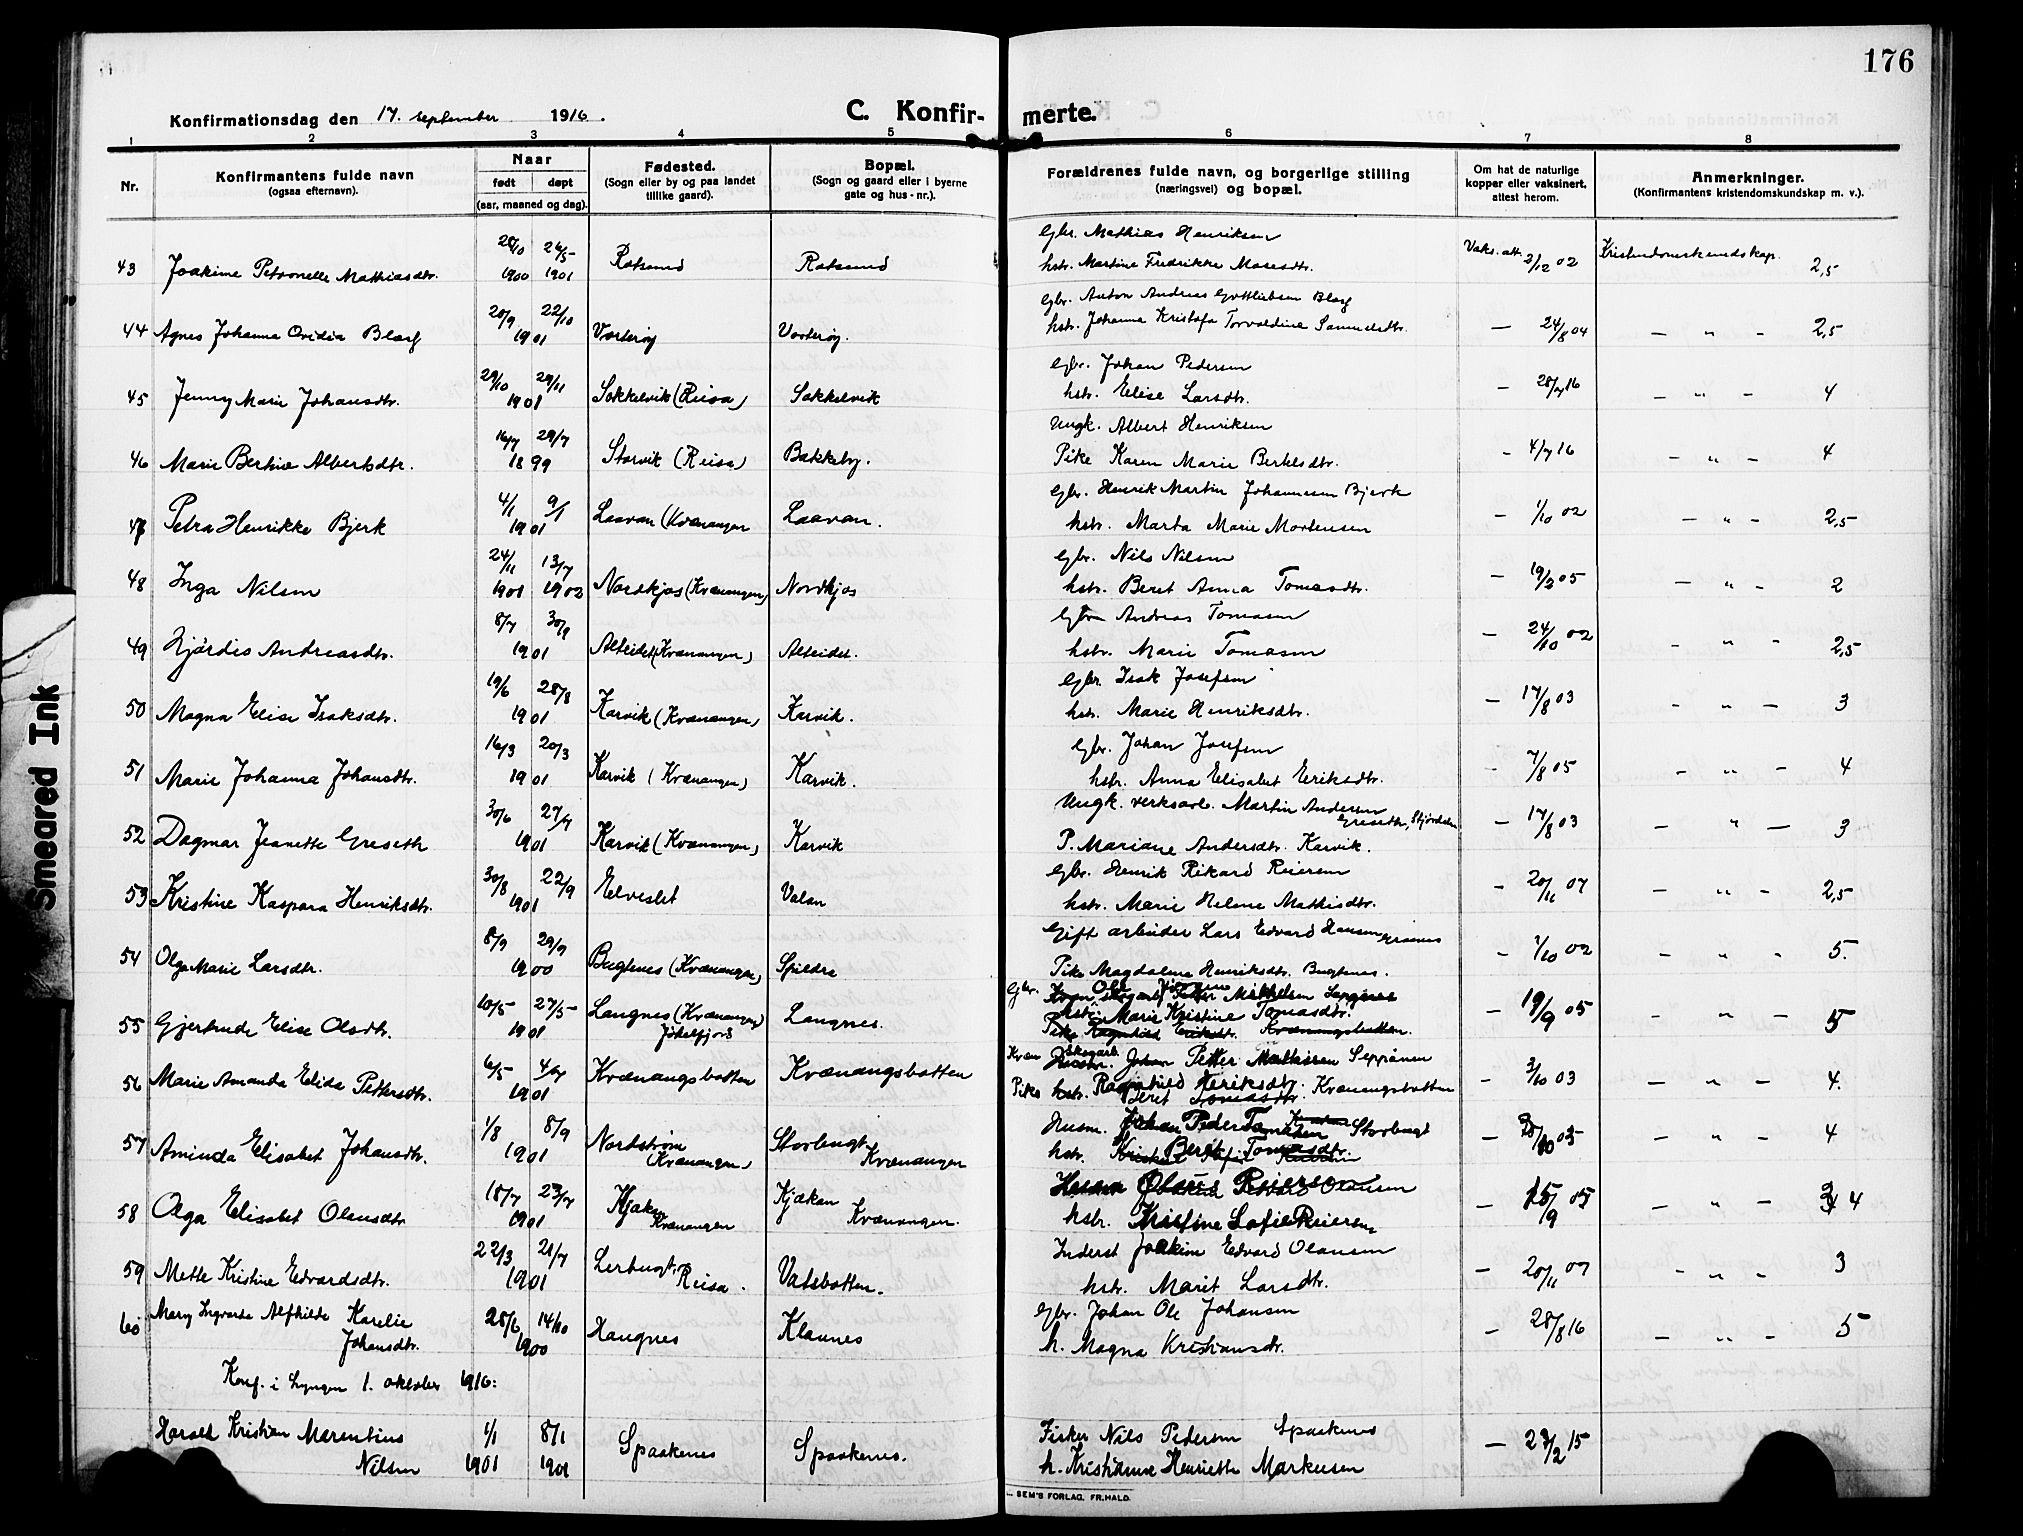 176
Konfirmationsdag den 17. september 1916.
C. Konfir-merte.
1 2 3 4 5 6 7 8
Nr.
Konfirmantens fulde navn
(ogsaa efternavn).
Naar
født døpt
(aar, maaned og dag).
Fødested.
(Sogn eller by og paa landet
tillike gaard).
Bopæl.
(Sogn og gaard eller i byerne
gate og hus-nr.).
Forældrenes fulde navn, og borgerlige stilling
(næringsvei) og bopæl.
Om hat de naturlige
kopper eller vaksinert,
attest herom.
Anmerkninger.
(Konfirmantens kristendomskundskap m. v.).
28/10 26/5 Gbr. Mathias Henriksen
43 Joakime Petronelle Mathiasdtr. 1900 1901 Rotsund Rotsund hstr. Martine Fredrikke Mosesdtr. Vaks. att. 2/12 02 Kristendomskundskap. 2,5
20/9 22/10 Gbr. Anton Andreas Gottliebsen
44 Agnes Johanna Ovidia 1901 Vorterøy Vorterøy. hstr. Johanna Kristofa Torvaldine Samuelsdtr. — 24/8 04 — " — 2,5
29/10 29/11 Gbr. Johan Pedersen
45 Jenny Marie Johansdtr. 1901 Sokkelvik (Reisa) Sokkelvik hstr. Elise Larsdtr. — 28/7 16 — " — 4
16/7 29/7 Ungk. Albert Henriksen
46 Marie Bertine Albertsdtr. 1899 Storvik (Reisa) Bakkeby. Pike Karen Marie Berhelsdtr. — 4/7 16 — " — 4
4/1 9/1 Gbr. Henrik Martin Johannesen Bjerk
47 Petra Henrikke Bjerk 1901 Laavan (Kvænangen Laavan. hstr. Marta Marie Mortensen — 1/10 02 — " — 2,5
24/11 13/7 Gbr. Nils Nilsen
48 Inga Nilsen 1901 1902 Nordkjos (Kvænangen) Nordkjos hstr. Beret Anna Tomasdtr. — 19/2 05 — " — 2
8/7 30/9 Gbr Andreas Tomasen
49 Hjørdis Andreasdtr. 1901 Alteidet (Kvænangen) Alteidet. hstr. Marie Tomasen — 24/10 02 — " — 2,5
19/6 28/8 Gbr. Isak Josefsen
50 Magna Elise Isaksdtr. 1901 Karvik (Kvænangen) Karvik. hstr. Marie Henriksdtr. — 17/8 03 — " — 3
16/3 20/3 Gbr. Johan Josefsen
51 Marie Johanna Johansdtr. 1901 Karvik (Kvænangen) Karvik. hstr. Anna Elisabet Eriksdtr. - 7/8 05 — " — 4
30/6 27/7 Ungk. verksarb. Martin Andersen Greseth, Stjørdalen
52 Dagmar Jeanette Greseth 1901 Karvik (Kvænangen) Karvik P. Mariane Andersdtr. Karvik. — 17/8 03 — " — 3
30/8 22/9 Gbr. Henrik Rikard Reiersen
53 Kristine Kaspara Henriksdtr. 1901 Elveslet Valan hstr. Marie Helene Mathisdtr. — 20/11 07 — " — 2,5
8/9 29/9 Gift arbeider Lars Edvard Hansen
54 Olga Marie Larsdtr. 1900 Bugtnes (Kvænangen) Spildra Pike Magdalena Henriksdtr. Bugtnes. — 1/10 02 — " — 5.
10/5 27/5 Gbr. Ole
55 Gjertrude Elise Olsdtr. 1901 Langnes (Kvænangen) Langnes. hstr. Marie Kristine Tomasdtr. — 19/9 05 — " — 5
Jøkelfjord Pike Ragnhild Eriksdtr. Kvænangsbotten.
6/5 4/7 Kvæn Skogarb. Johan Petter Mathisen Seppänen
56 Marie Amanda Elida Pettersdtr. 1901 Kvænangsbotten Kvænangsbotten Pike hstr. Ragnhild Eriksdtr. Kvænangsbotten — 3/10 03 — " — 4.
Beret Tomasdtr.
1/8 8/9 Husm. Johan Peder Storbugt
57 Aminda Elisabet Johansdtr. 1901 Nordstrøm (Kvænangen) Storbugt Kvænangen hstr. Beret Tomasdtr. — " — 4
18/7 23/7 Olaus Reiersen
58 Olga Elisabet Olausdtr 1901 Kjækan Kvænangen Kjækan Kvænangen. hstr. Kristine Sofie Reiersen — 15/9 05 — " — 4
22/3 21/7 Inderst Joakim Edvard Olausen
59 Mette Kristine Edvardsdtr. 1901 Lerbugt, Reisa. Vatsbotten. hstr. Marit Larsdtr. — 20/11 07 — " — 3
60 Mary Ingvarda Alfhilde Karelie 28/6 14/10 Gbr. Johan Ole Johansen
Johansdtr. 1900 Haugnes Klaunes h. Magna Kristiansdtr. — 28/8 16 — " — 5
Konf. i Lyngen 1. oktober 1916:
Harald Kristian Marentius 1/1 8/1 Spaakenes Spaakenes. Fisker Nils Pedersen Spaakenes
Nilsen 1901 1901 h. Kristianne Henriette Markusen — 27/2 15
SEM'S FORLAG, FR. HALD.
Smeared Ink